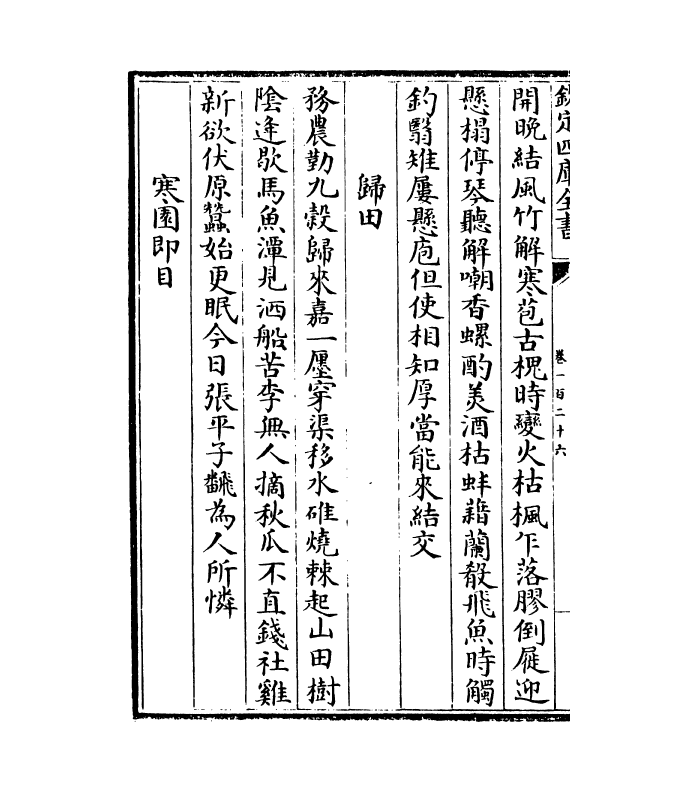 欽定四庫全書
卷一百二十六
開晚結風竹解寒苞古槐時變火枯楓乍落膠倒屣迎
懸榻停琴聽解嘲香螺酌美酒枯蚌藉蘭殽飛魚時觸
釣翳雉屢懸庖但使相知厚當能來結交
歸田
務農勤九穀歸來嘉一廛穿渠移水碓燒棘起山田樹
陰逢歇馬魚潭見洒船苦李無人摘秋瓜不直錢社雞
新欲伏原蠶始更眠今日張平子翻為人所憐
寒園即目